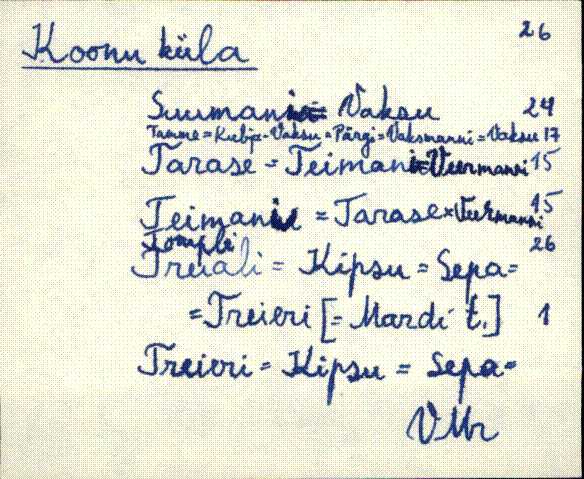 Koonu küla 26
Suumani = Vaksu 24
Tamme = Kubja = Vaksu = Pärgi = Vaksmanni = Vaksu 17
Tarase = Teimani = Veermanni 15
Teimani = Tarase = Veermanni 15
Tompli 26
Treiali = Kipsu = Sepa =
= Treieri [= Mardi t.] 1
Treieri = Kipsu = Sepa =
VMr